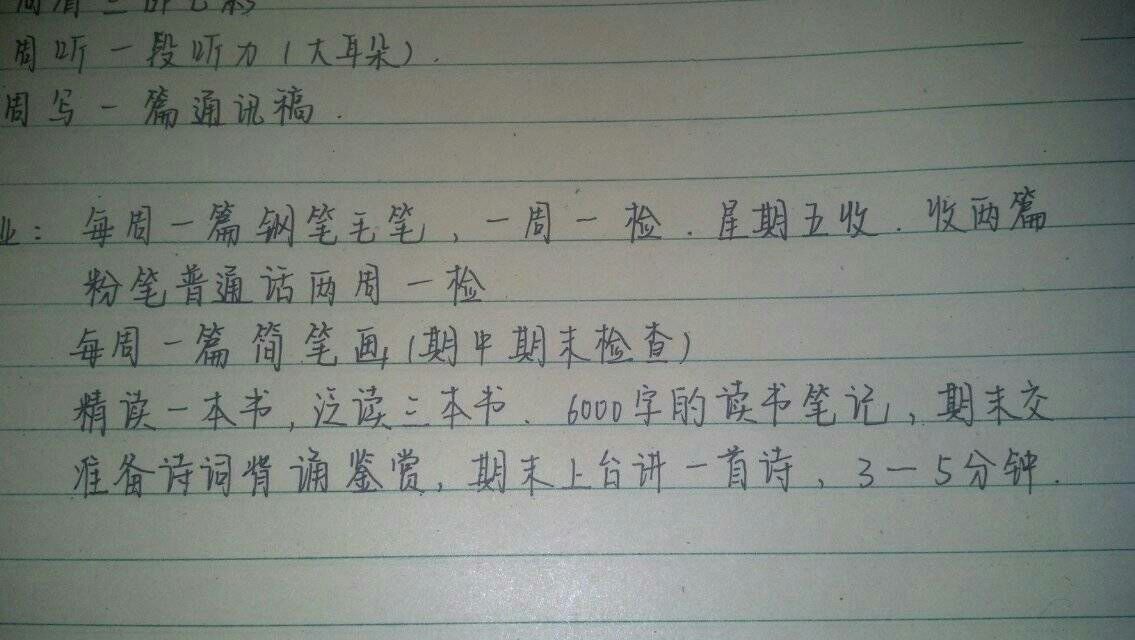 周听一段听力(大耳朵).
周写一篇通讯稿.
业: 每周一篇钢笔毛笔、一周一检.星期五收.收两篇
粉笔普通话两周一检
每周一篇简笔画,(期中期末检查)
精读一本书,泛读三本书.6000字的读书笔记,期末交
准备诗词背诵鉴赏,期末上台讲一首诗,3一5分钟.